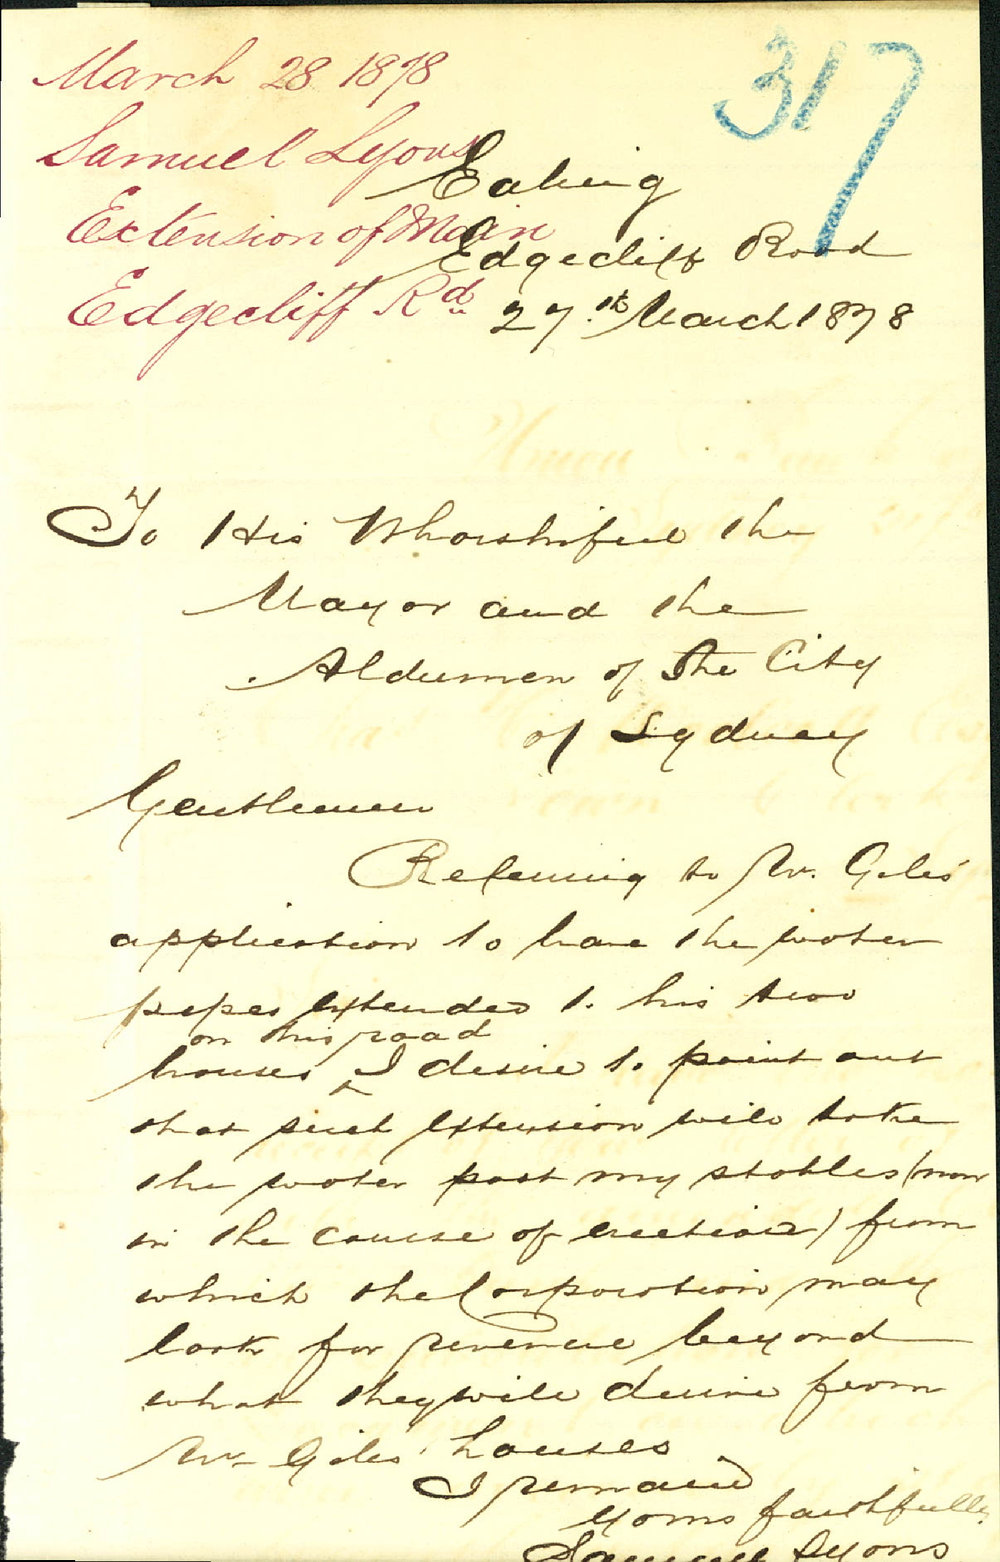 317
March 28 1878
Samuel Lyons
Extension of Main
Edgecliff Rd
Ealing
Edgecliff Road
27th March 1878
To His Whorshipfull the
Mayor and the
Aldermen of the City
of Sydney
Gentlemen
Referring to Mr. Giles'
application to have the water
pipes extended to his two
on this road
houses I desire to point out
that such extension will take
the water past my stables (now
in the course of erection) from
which the Corporation may
look for revenue beyond
what they will derive from
Mr Giles' houses
I remain
Yours faithfully
Samuel Lyons